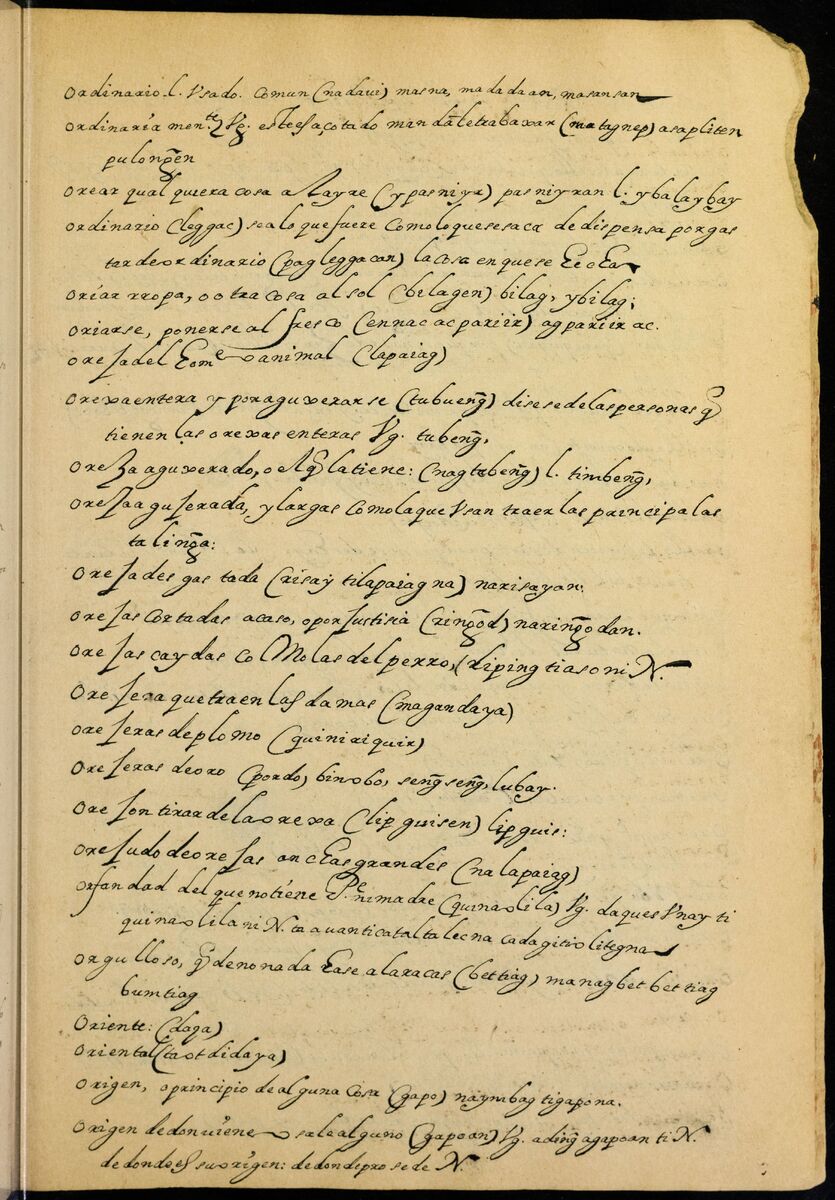 Ordinario l. Vsado. comun (nadaui) masna, madadaan, masansan
Ordinariamen.te Vg. esteesaçotado mandāletrabaxar (matagnep) asapliten
pulongēn
Orear qualquiera cosa alayre (ypasniyr) pasniyran l. ybalaybay
Ordinario (leggac) sealo quefuere comoloquesesaca dedispensa porgas
tardeordinario (pagleggacan) lacosa enquese EcEa
Oriar rropa, o otra cosa al sol (bilagen) bilag, ybilag;
Oriarse, ponerse al fresco (ennac acpariir) agpariir ac.
Oreja del Eome o animal (lapaiag)
Orexa entera y poraguxerarse (tubuenḡ) disese delas personas q̄
tienen las orexas enteras Vg. tubenḡ,
Oreja aguxerado, o el q̄ la tiene: (nagtebenḡ) l. timbenḡ,
Oreja agujerada, y largas como laque Vsan traer las principalas
talinḡa:
Oreja desgastada (risay tilapaiagna) narisayan.
Orejas cortadas acaso, o por Justisia (ringōd) naringōdan.
Orejas caydas co Molas del perro, (dipingtiaso ni N.
Orejera que traen las damas (magandaya)
Orejeras de plomo (quiniriquir)
Orejeras deoro (pordo) binobo, senḡsenḡ, lubay.
Orejon tirar dela orexa (lipguisen) lipguis:
Orejudo de orejas anchas grandes (nalapaiag)
Orfandad del que notiene P.e ni madre (quinaolila) Vg. daques Vnay ti
quinaolila ni N. ta auanticataltalecna cadagitiolitegna
Orgulloso, q̄ de nonada Ease alaracas (bettiag) managbetbettiag
bumtiag
Oriente: (daya)
Oriental (taotdidaya)
Origen, o principio de alguna cosa (gapo) naymbag tigapona.
Origen dedonuiene o sale alguno (gapoan) Vg. adinḡ agapoan ti N.
de donde es su origen: dedondeprosede N.